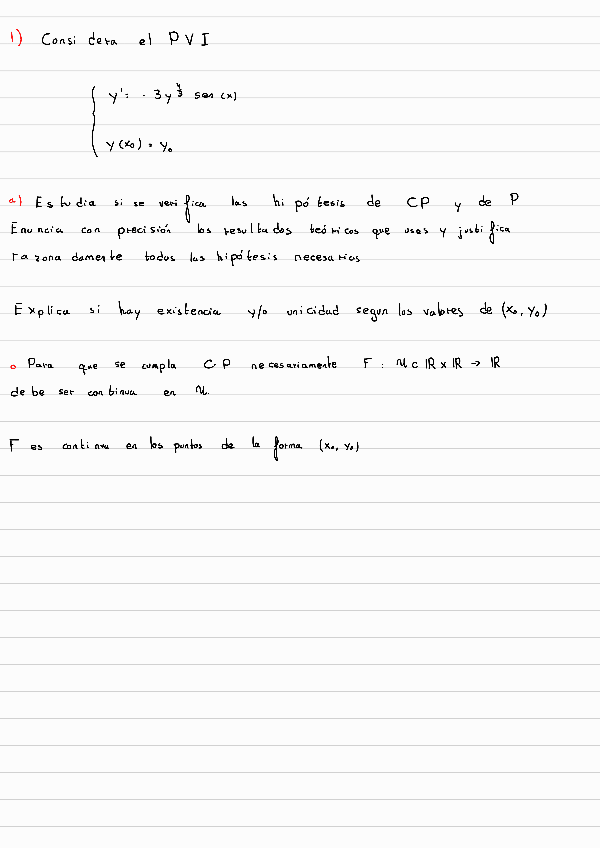 1) Considera el PVI
y' = - 3y^{4/3} sen (x)
y(x₀) = y₀
a) Estudia si se verifica las hipótesis de CP y de P
Enuncia con precisión los resultados teóricos que uses y justifica
razonadamente todas las hipótesis necesarias
Explica si hay existencia y/o unicidad segun los valores de (x₀, y₀)
o Para que se cumpla CP necesariamente F : U ⊂ ℝ x ℝ → ℝ
debe ser continua en U.
F es continua en los puntos de la forma (x₀, y₀)